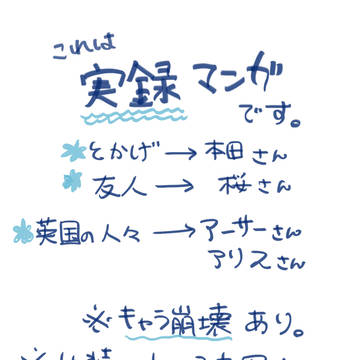 これは
実録マンガ
です。
とかげ→本田さん
友人→桜さん
英国の人々→アーサーさん
アリスさん
※キャラ崩壊あり。